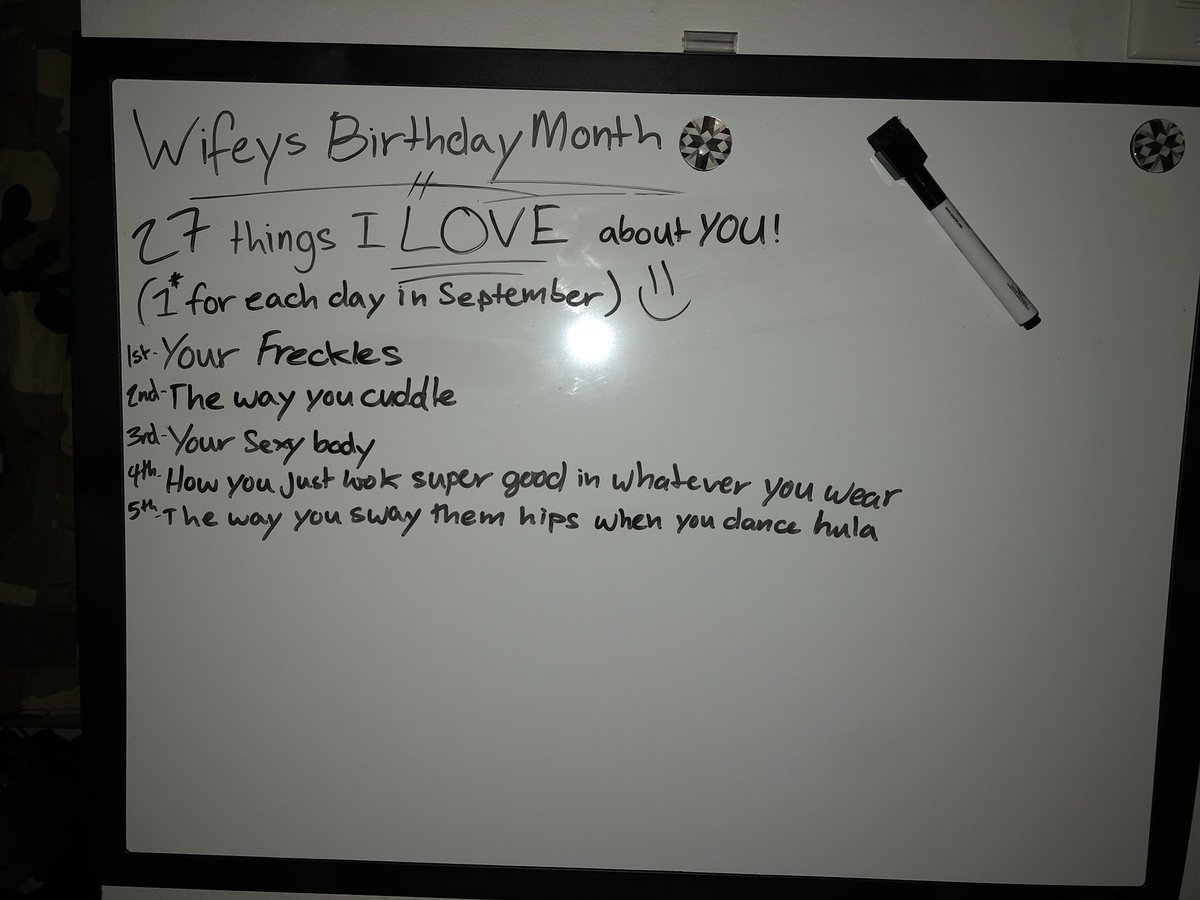 Wifeys Birthday Month
27 things I LOVE about YOU!
(1* for each day in September)
1st-Your Freckles
2nd-The way you cuddle
3rd-Your Sexy body
4th-How you just look super good in whatever you wear
5th-The way you sway them hips when you dance hula